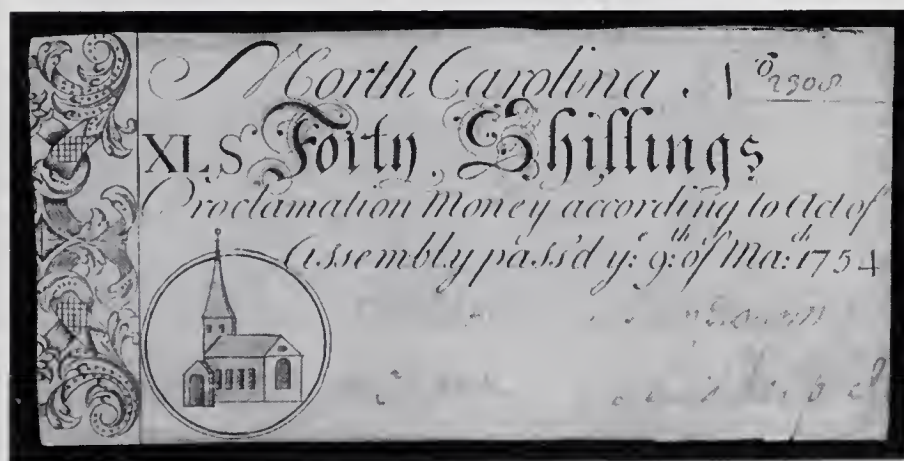 North Carolina. No 2308
XL,S Forty, Shillings
Proclamation Money according to Act of
Assembly pass'd ye: 9:th of Mach: 1754